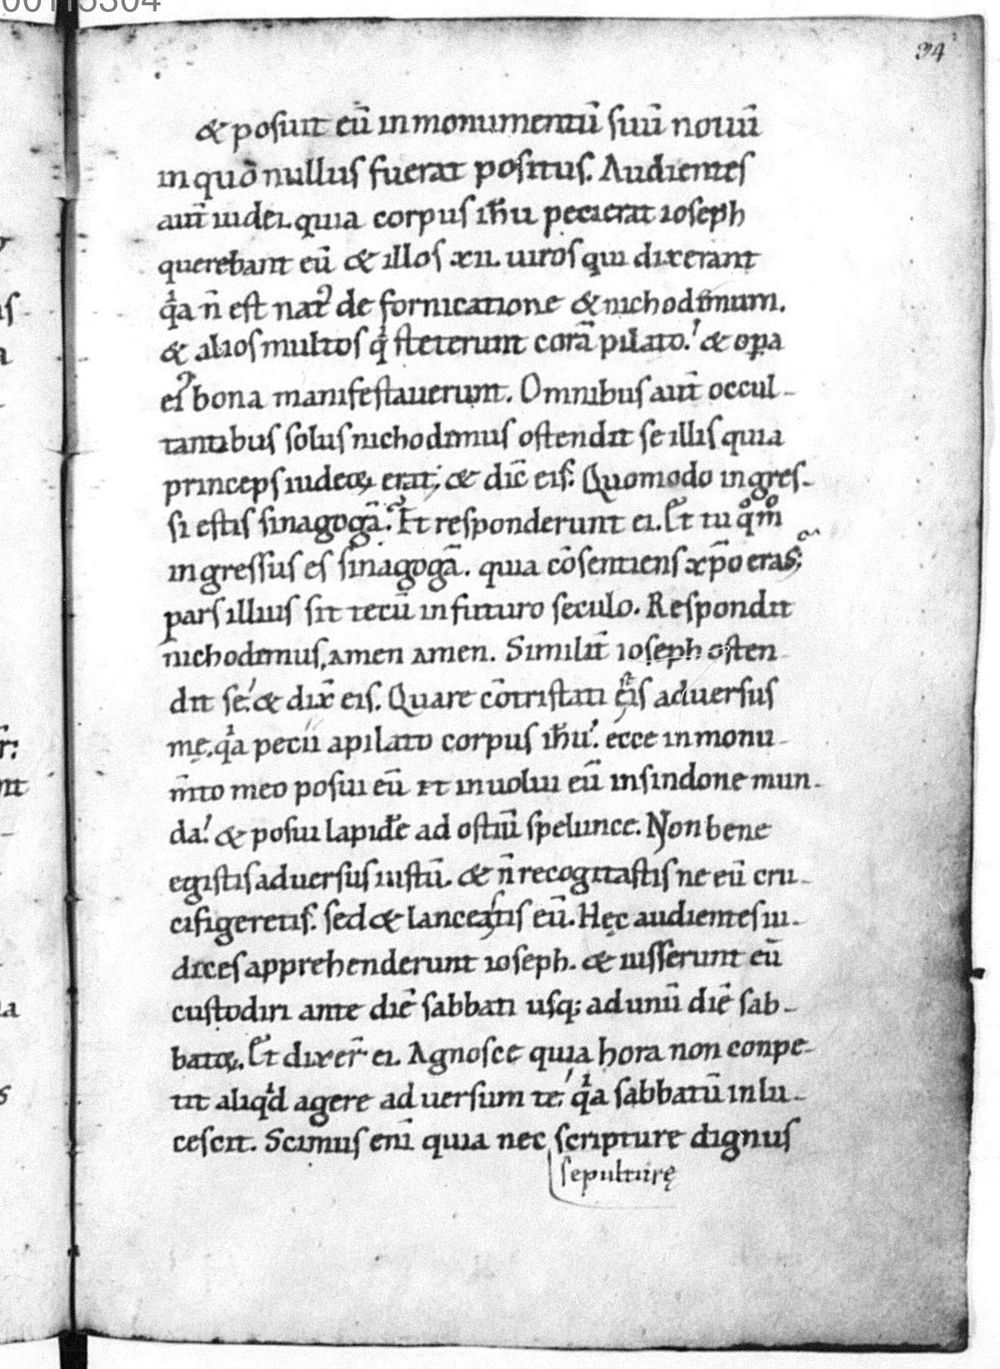 00113304
34
& posuit eū in monumentū suū nouū
in quo nullus fuerat positus. Audientes
aut̄ iudei. quia corpus ih̄u pecierat ioseph
querebant eū & illos xii. uiros qui dixerant
qͥa n̄ est natꝰ de fornicatione & nichodimum.
& alios multos qͥ steterunt corā pilato. & oꝑa
eiꝰ bona manifestauerunt. Omnibus aut̄ occul-
tantibus solus nichodimus ostendit se illis quia
princeps iudeoꝝ erat; & dic̄ eis. Quomodo ingres-
si estis sinagogā. Et responderunt ei. Et tu qͦmͦ
ingressus es sinagogā. quia cōsentiens xp̄o eras;
pars illius sit tecū in futuro seculo. Respondit
nichodimus, amen amen. Similit̄ ioseph osten
dit se. & dix̄ eis. Quare cōtristati estis aduersus
me. qͥa pecii a pilato corpus ih̄u. ecce in monu-
m̄to meo posui eū et inuolui eū in sindone mun-
da. & posui lapidē ad ostiū spelunce. Non bene
egistis aduersus iustū. & n̄ recogitastis ne eū cru-
cifigeretis. sed & lanceastis eū. Hęc audientes iu-
dices apprehenderunt ioseph. & iusserunt eū
custodiri ante diē sabbati usq; ad unū diē sab-
batoꝝ. Et dixer̄ ei. Agnosce quia hora non conpe-
tit aliqͥd agere aduersum te. qͥa sabbatū inlu-
cescit. Scimus enī quia nec scripture dignus
sepulturę